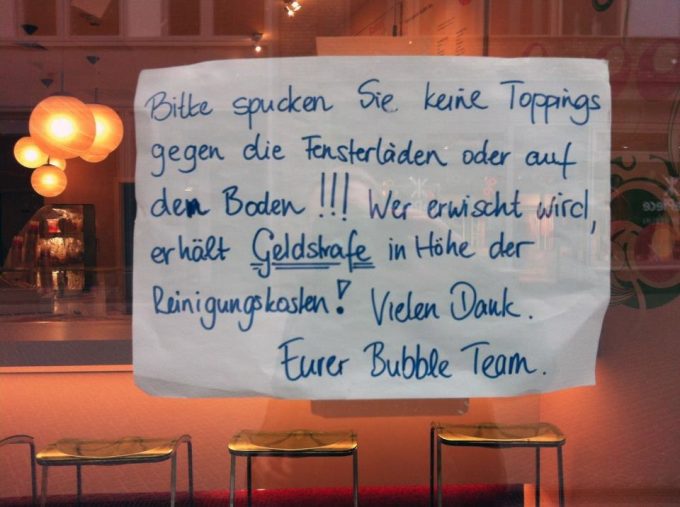 Bitte spucken Sie keine Toppings
gegen die Fensterläden oder auf
den Boden !!! Wer erwischt wird,
erhält Geldstrafe in Höhe der
Reinigungskosten! Vielen Dank.
Eurer Bubble Team.